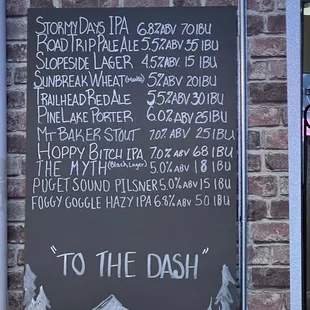 STORMY DAYS IPA 6.8%ABV 70 IBU
ROAD TRIP PALE ALE 5.5%ABV 35 IBU
SLOPESIDE LAGER 4.5%ABV 15 IBU
SUNBREAK WHEAT 5%ABV 20 IBU
TRAILHEAD RED ALE 5.5%ABV 30 IBU
PINE LAKE PORTER 6.0%ABV 25 IBU
MT BAKER STOUT 7.0% ABV 25 IBU
HOPPY BITCH IPA 7.0%ABV 68 IBU
THE MYTH (Black Lager) 5.0%ABV 18 IBU
PUGET SOUND PILSNER 5.0%ABV 15 IBU
FOGGY GOGGLE HAZY IPA 6.8%ABV 50 IBU
"TO THE DASH"